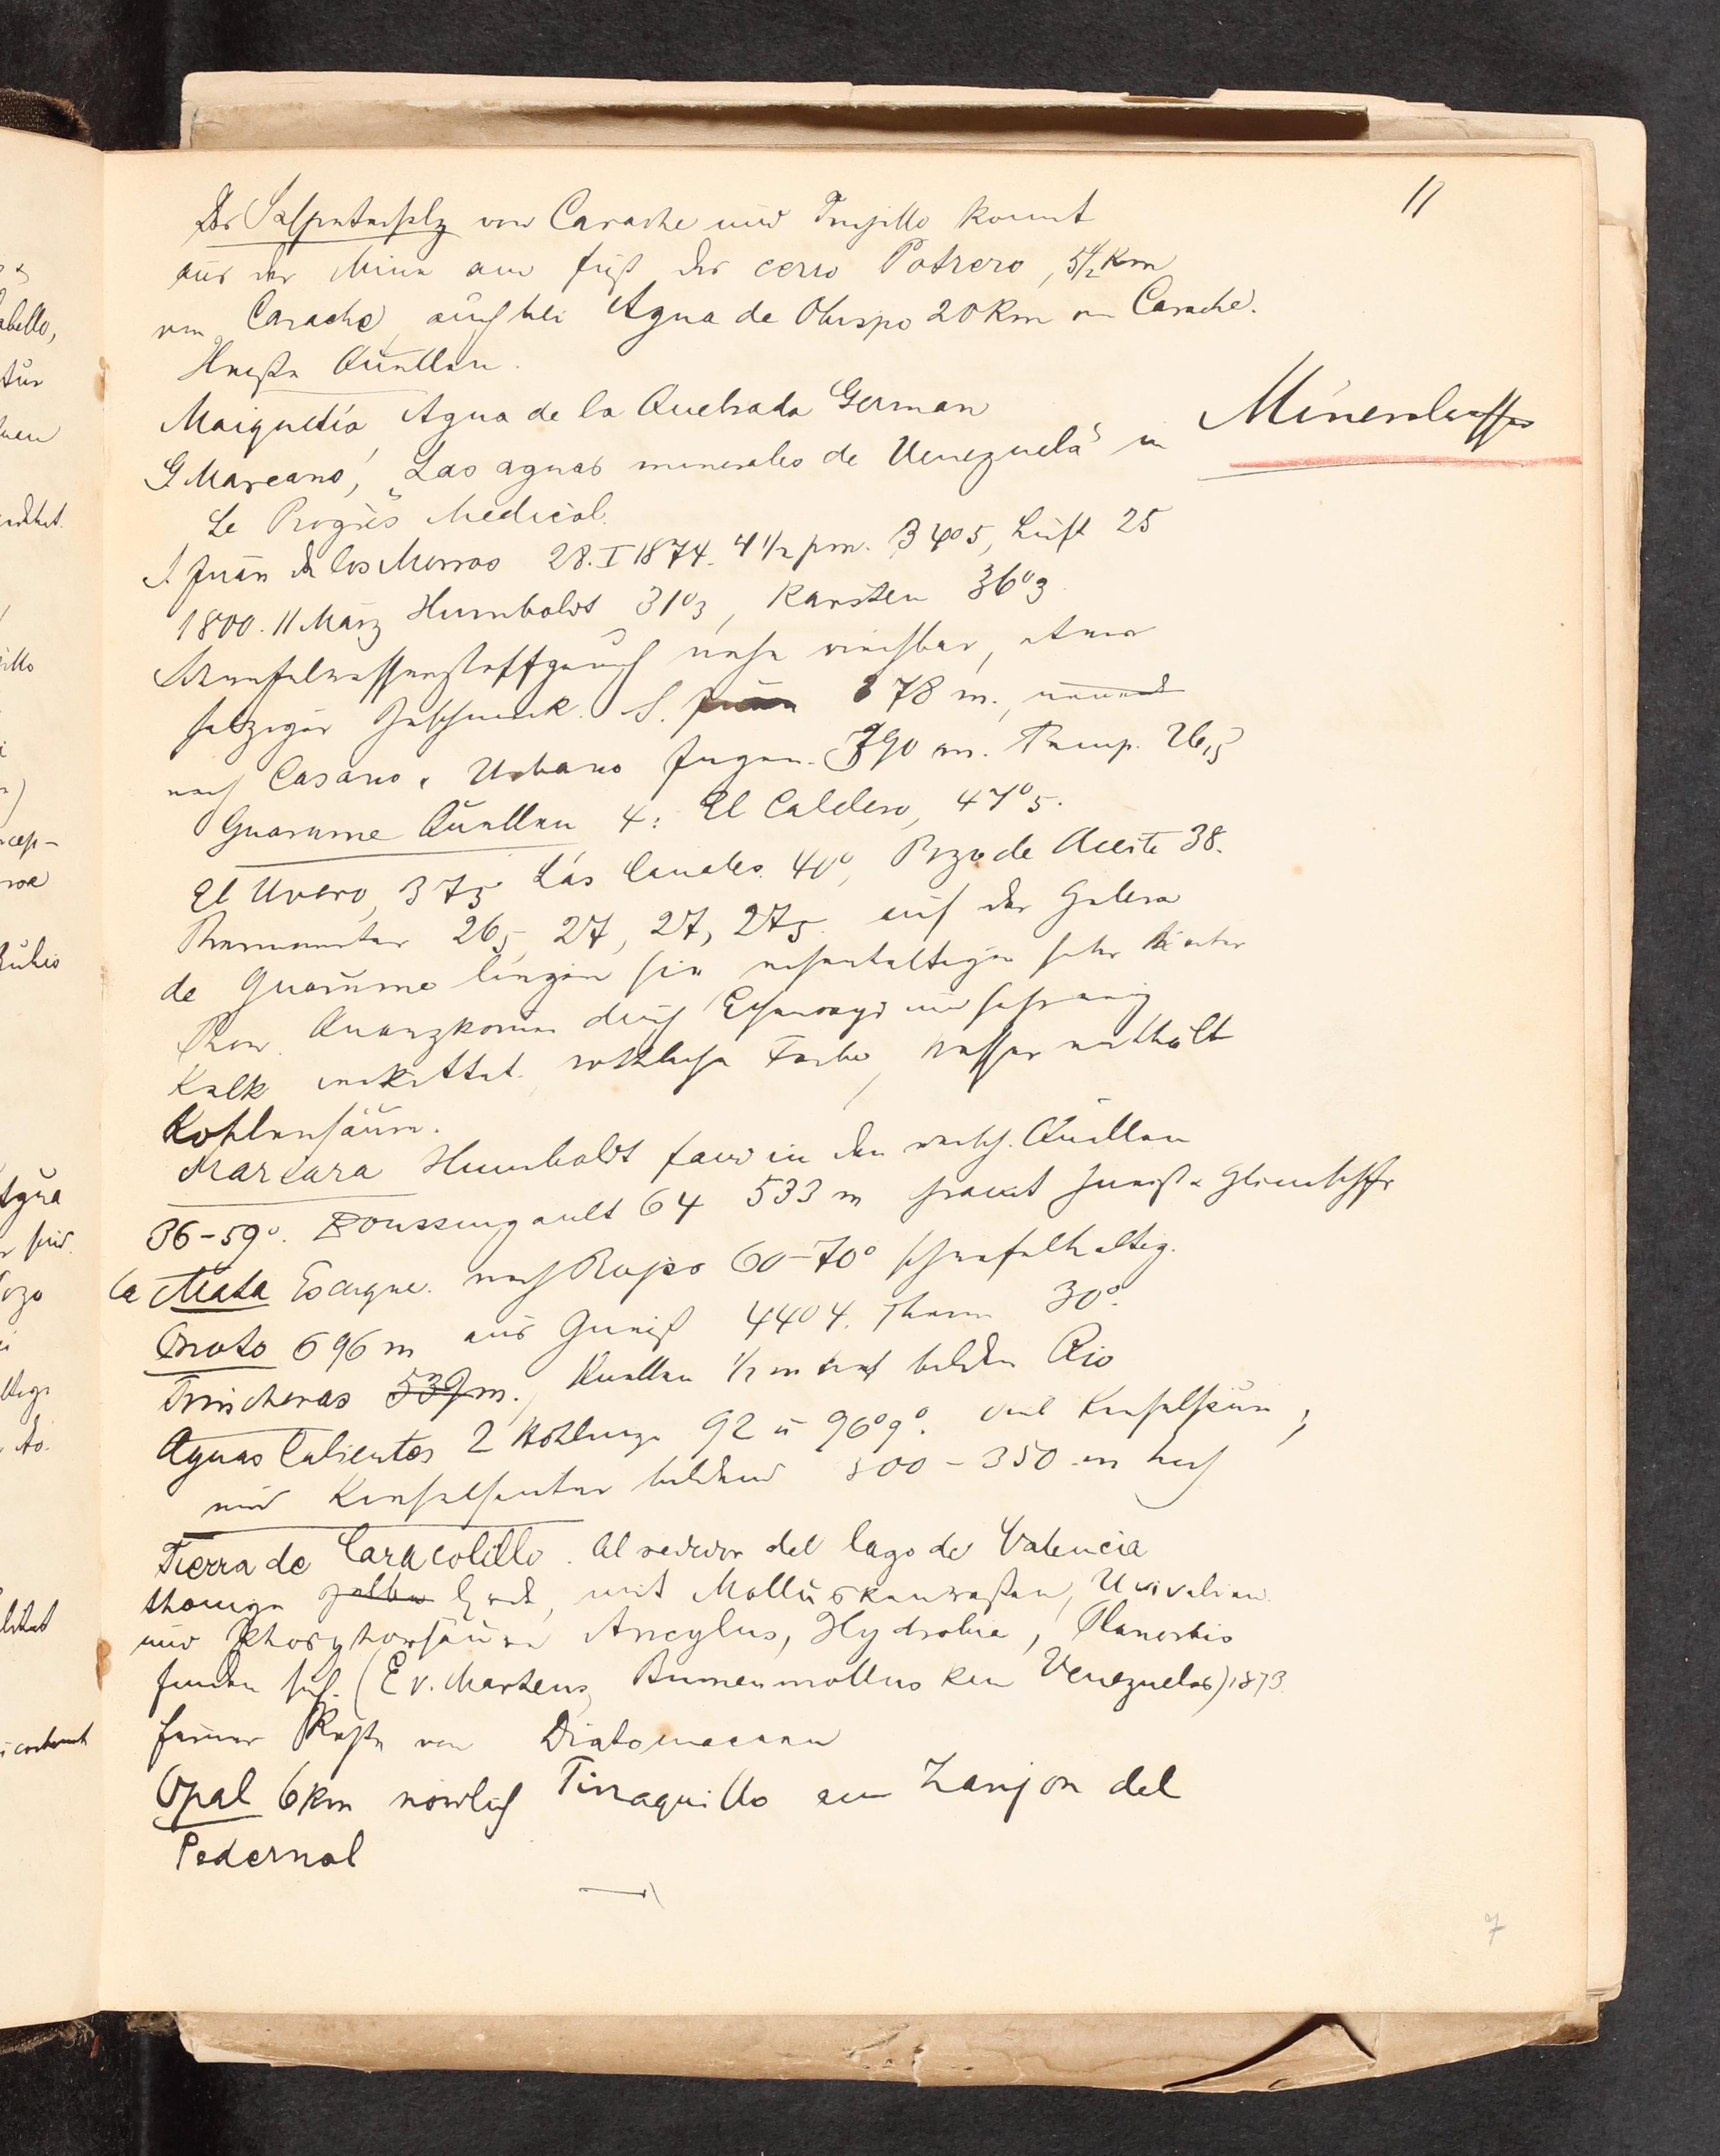 11
Das Salpetersalz von Carache und Trujillo kommt
aus der Mine am Fuß des cerro Potrero, 5½ Km
von Carache, auch bei Agua de Obispo 20 Km von Carache.
Heiße Quellen.
Mineralwasser
Maiquetia Agua de la Quebrada German
G Marcano, „Las aguas minerales de Venezuela" in
Le Progrès Medical.
S. Juan de los Morros 28.I 1874. 4 1/2 pm. 34°5, Luft 25
1800. 11 März Humboldt 31°3, Karsten 36°3
Schwefelwasserstoffgeruch riechbar, etwas
salziger Geschmack. S. Juan 878 m.,
nach Casano & Urbano Ingen. 790 m. Temp. 26,5
Guarume Quellen 4: El Caldero, 47°5.
El Uvero, 375 Las Canales. 40°, Pozo de Aceite 38.
Thermometer 265, 27, 27, 275. auf der Galera
de Guarume liegen sie sehr
Thon. Quarzkörner durch Eisenoxyd und
Kalk verkittet. rötliche Farbe, Wasser enthält
Kohlensäure.
Mariara Humboldt fand in den Quellen
36-59°. Boussingault 64 533 m Gneiß & Glimmerschfr
la Mata Esceque. nach Rojas 60-70° schwefelhaltig.
Onoto 696 m aus Gneiß 44°4. Therm 30°.
Trincheras 539 m., Quellen ½ m breit bilden Rio
Aguas Calientes 2 92 u 96°9°. viel Kieselsäure,
und Kieselsinter bildend 300 - 350 m hoch
Tierra de Caracolillo. Al rededor del lago de Valencia
thonige gelbe Erde, mit Molluskenresten, Univalven
und Phosphorsäure Ancylus, Hydrobia, Planorbis
finden sich. (E v. Martens, Binnenmollusken Venezuelas) 1873.
ferner Reste von Diatomaceen
Opal 6 km nördlich Tinaquillo am Zanjon del
Pedernal
7